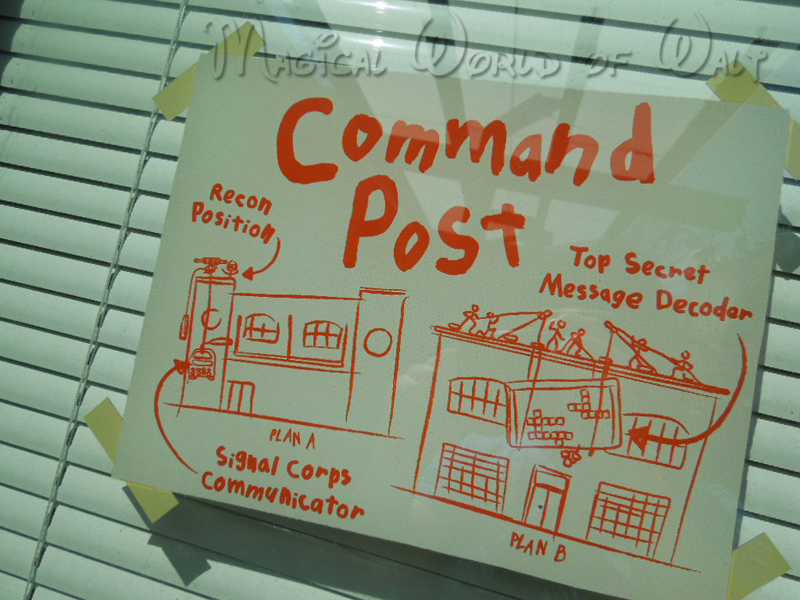 Magical World of Walt
Command
Post
Recon
Position
Top Secret
Message Decoder
PLAN A
Signal Corps
Communicator
PLAN B